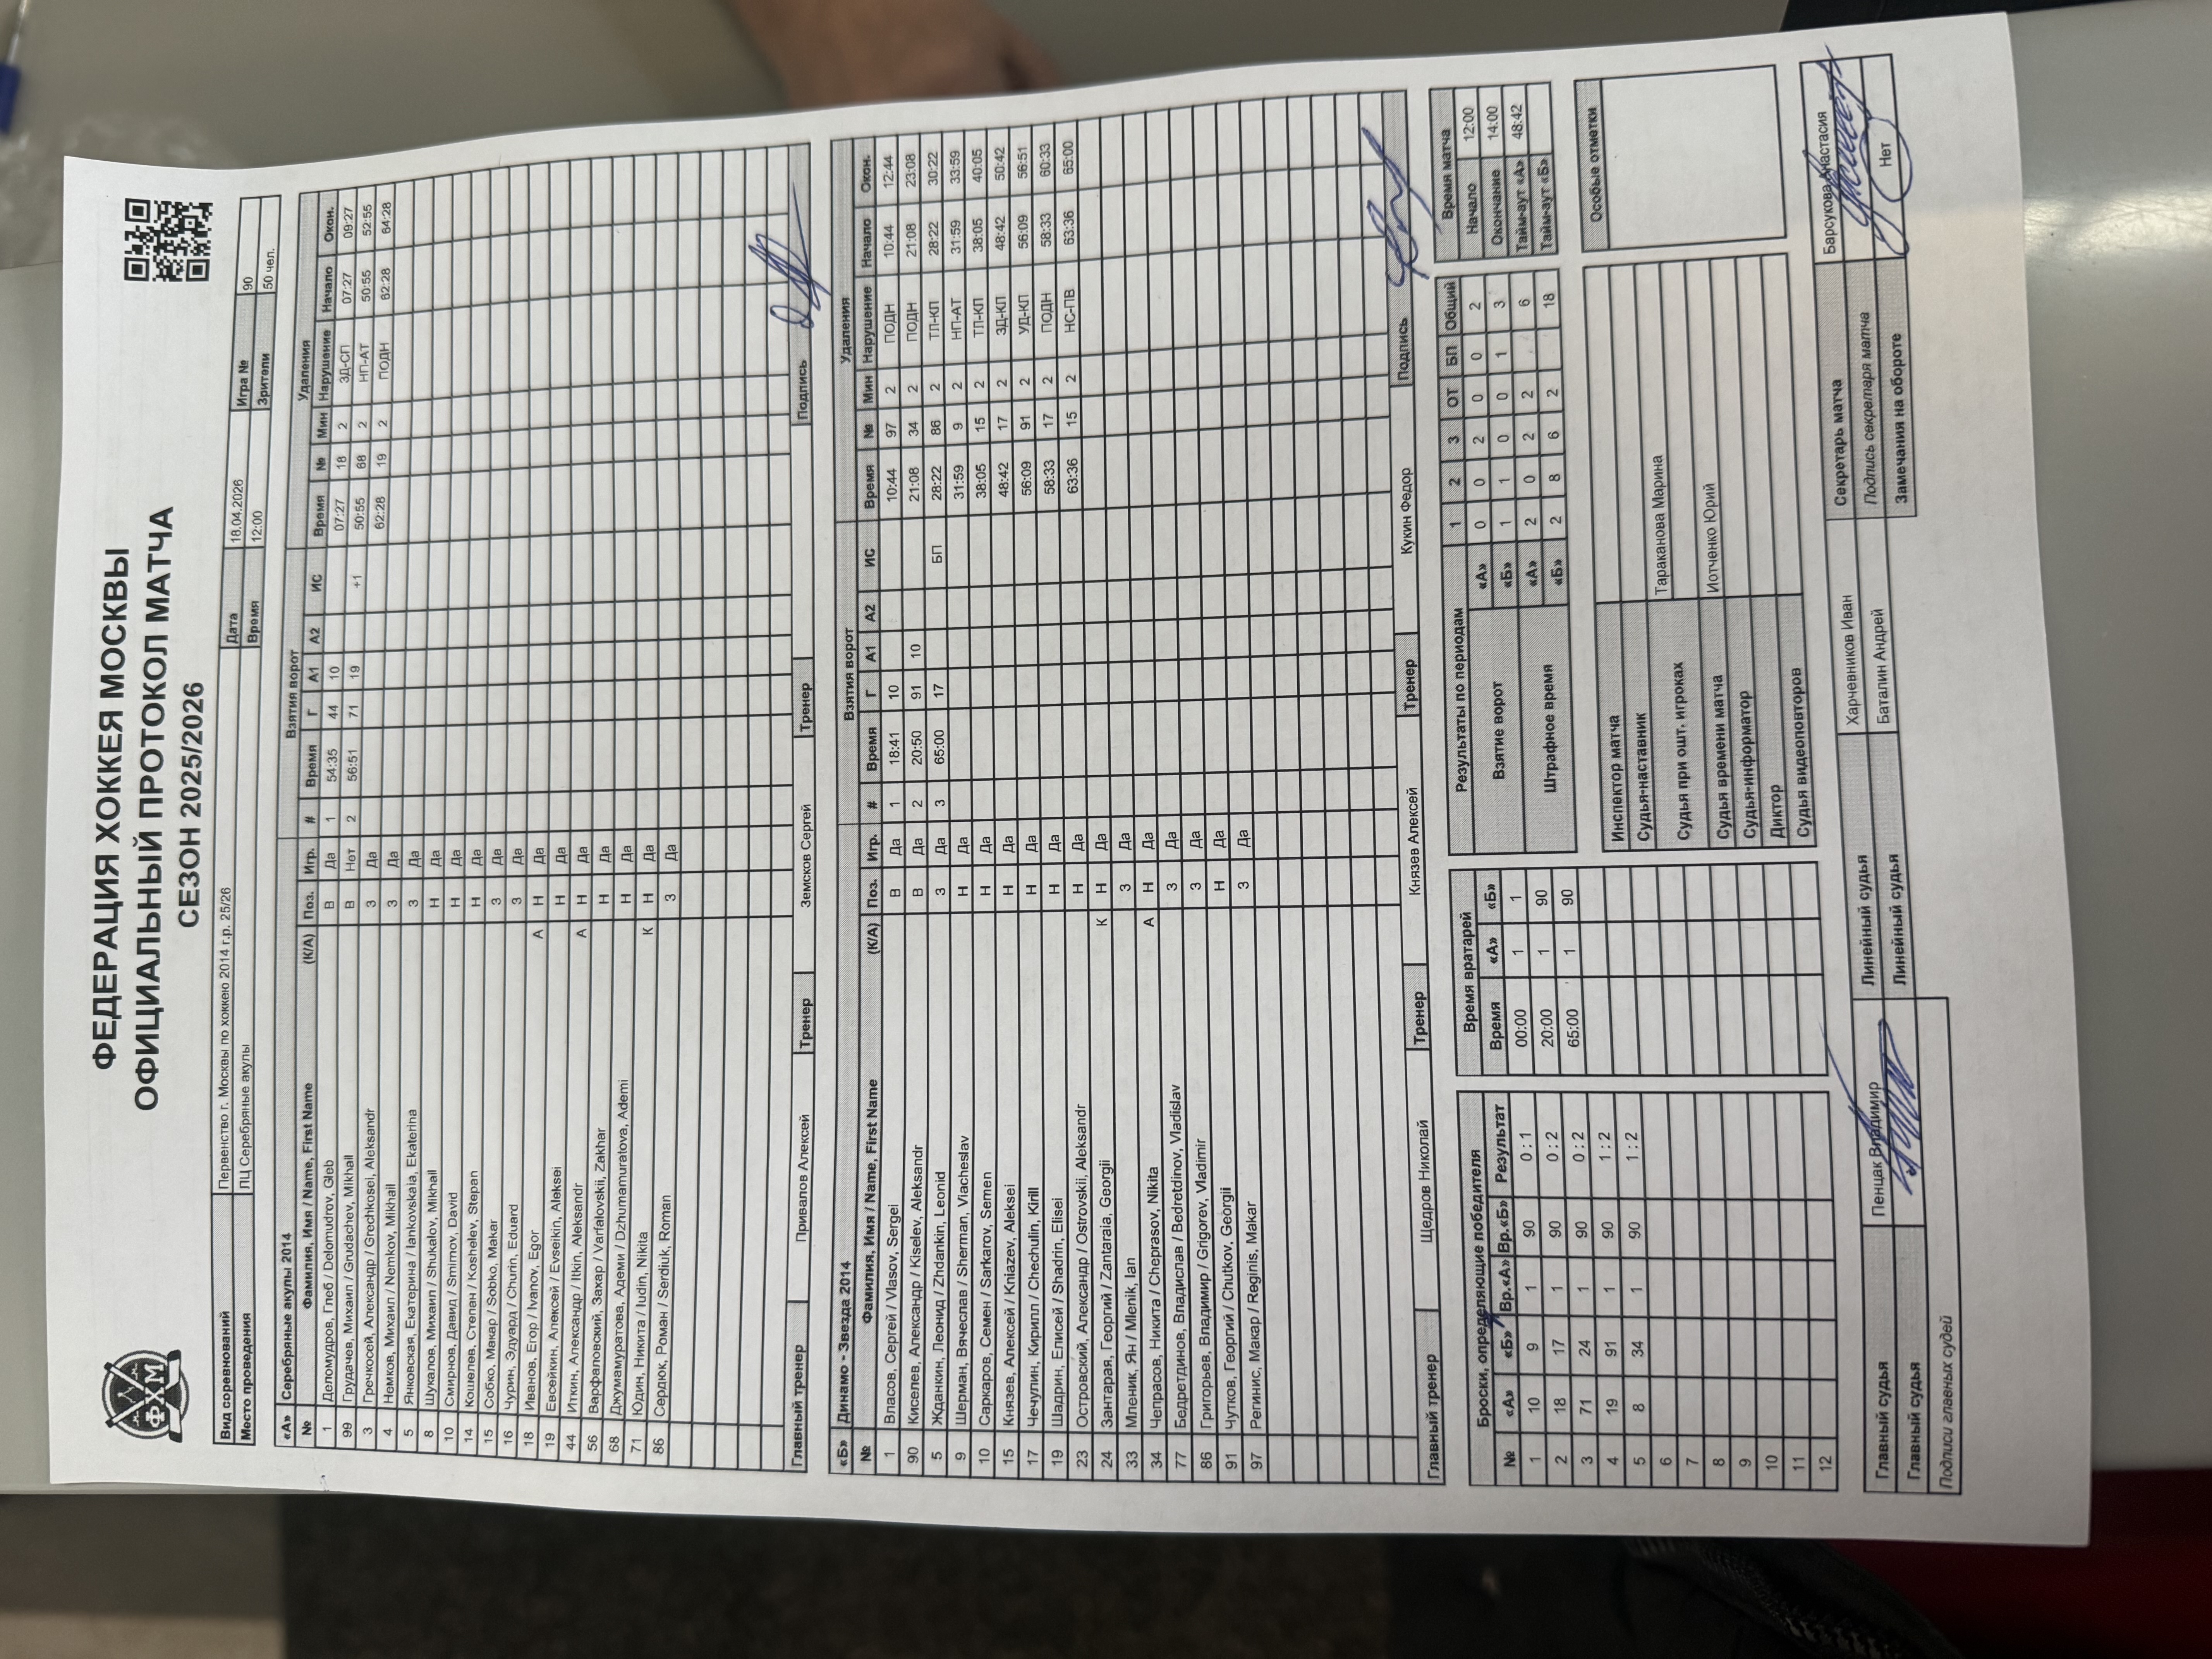 ФХМ
ФЕДЕРАЦИЯ ХОККЕЯ МОСКВЫ
ОФИЦИАЛЬНЫЙ ПРОТОКОЛ МАТЧА
СЕЗОН 2025/2026
Вид соревнований Первенство г. Москвы по хоккею 2014 г.р. 25/26 Дата 18.04.2026 Игра № 90
Место проведения ЛЦ Серебряные акулы Время 12:00 Зрители 50 чел.
«А» Серебряные акулы 2014 Взятия ворот Удаления
№ Фамилия, Имя / Name, First Name (К/А) Поз. Игр. # Время Г А1 А2 ИС Время № Мин Нарушение Начало Окон.
1 Деломудров, Глеб / Delomudrov, Gleb В Да 1 54:35 44 10 07:27 18 2 ЗД-СП 07:27 09:27
99 Грудачев, Михаил / Grudachev, Mikhail В Нет 2 56:51 71 19 +1 50:55 68 2 НП-АТ 50:55 52:55
3 Гречкосей, Александр / Grechkosei, Aleksandr З Да 62:28 19 2 ПОДН 62:28 64:28
4 Немков, Михаил / Nemkov, Mikhail З Да
5 Янковская, Екатерина / Iankovskaia, Ekaterina З Да
8 Шукалов, Михаил / Shukalov, Mikhail Н Да
10 Смирнов, Давид / Smirnov, David Н Да
14 Кошелев, Степан / Koshelev, Stepan Н Да
15 Собко, Макар / Sobko, Makar З Да
16 Чурин, Эдуард / Churin, Eduard З Да
18 Иванов, Егор / Ivanov, Egor А Н Да
19 Евсейкин, Алексей / Evseikin, Aleksei Н Да
44 Иткин, Александр / Itkin, Aleksandr А Н Да
56 Варфаловский, Захар / Varfalovskii, Zakhar Н Да
68 Джумамуратова, Адеми / Dzhumamuratova, Ademi Н Да
71 Юдин, Никита / Iudin, Nikita К Н Да
86 Сердюк, Роман / Serdiuk, Roman З Да
Главный тренер Привалов Алексей Тренер Земсков Сергей Тренер Подпись
«Б» Динамо - Звезда 2014 Взятия ворот Удаления
№ Фамилия, Имя / Name, First Name (К/А) Поз. Игр. # Время Г А1 А2 ИС Время № Мин Нарушение Начало Окон.
1 Власов, Сергей / Vlasov, Sergei В Да 1 18:41 10 10:44 97 2 ПОДН 10:44 12:44
90 Киселев, Александр / Kiselev, Aleksandr В Да 2 20:50 91 10 21:08 34 2 ПОДН 21:08 23:08
5 Жданкин, Леонид / Zhdankin, Leonid З Да 3 65:00 17 БП 28:22 86 2 ТЛ-КЛ 28:22 30:22
9 Шерман, Вячеслав / Sherman, Viacheslav Н Да 31:59 9 2 НП-АТ 31:59 33:59
10 Саркаров, Семен / Sarkarov, Semen Н Да 38:05 15 2 ТЛ-КЛ 38:05 40:05
15 Князев, Алексей / Kniazev, Aleksei Н Да 48:42 17 2 ЗД-КЛ 48:42 50:42
17 Чечулин, Кирилл / Chechulin, Kirill Н Да 56:09 91 2 УД-КЛ 56:09 56:51
19 Шадрин, Елисей / Shadrin, Elisei Н Да 58:33 17 2 ПОДН 58:33 60:33
23 Островский, Александр / Ostrovskii, Aleksandr Н Да 63:36 15 2 НС-ПВ 63:36 65:00
24 Зантарая, Георгий / Zantaraia, Georgii К Н Да
33 Мленик, Ян / Mlenik, Ian З Да
34 Чепрасов, Никита / Cheprasov, Nikita А Н Да
77 Бедретдинов, Владислав / Bedretdinov, Vladislav З Да
86 Григорьев, Владимир / Grigorev, Vladimir З Да
91 Чутков, Георгий / Chutkov, Georgii Н Да
97 Регинис, Макар / Reginis, Makar З Да
Главный тренер Щедров Николай Тренер Князев Алексей Тренер Кукин Федор Подпись
Броски, определяющие победителя
№ «А» «Б» Вр.«А» Вр.«Б» Результат
1 10 9 1 90 0 : 1
2 18 17 1 90 0 : 2
3 71 24 1 90 0 : 2
4 19 91 1 90 1 : 2
5 8 34 1 90 1 : 2
6
7
8
9
10
11
12
Время вратарей
Время «А» «Б»
00:00 1 1
20:00 1 90
65:00 1 90
Результаты по периодам 1 2 3 ОТ БП Общий
Взятие ворот «А» 0 0 2 0 0 2
«Б» 1 1 0 0 1 3
Штрафное время «А» 2 0 2 2 6
«Б» 2 8 6 2 18
Время матча
Начало 12:00
Окончание 14:00
Тайм-аут «А» 48:42
Тайм-аут «Б»
Инспектор матча
Судья-наставник
Судья при ошт. игроках Тараканова Марина
Судья времени матча Иотченко Юрий
Судья-информатор
Диктор
Судья видеоповторов
Особые отметки
Главный судья Пенцак Владимир Линейный судья Харчевников Иван Секретарь матча Барсукова Анастасия
Главный судья Линейный судья Баталин Андрей Подпись секретаря матча
Подписи главных судей Замечания на обороте Нет